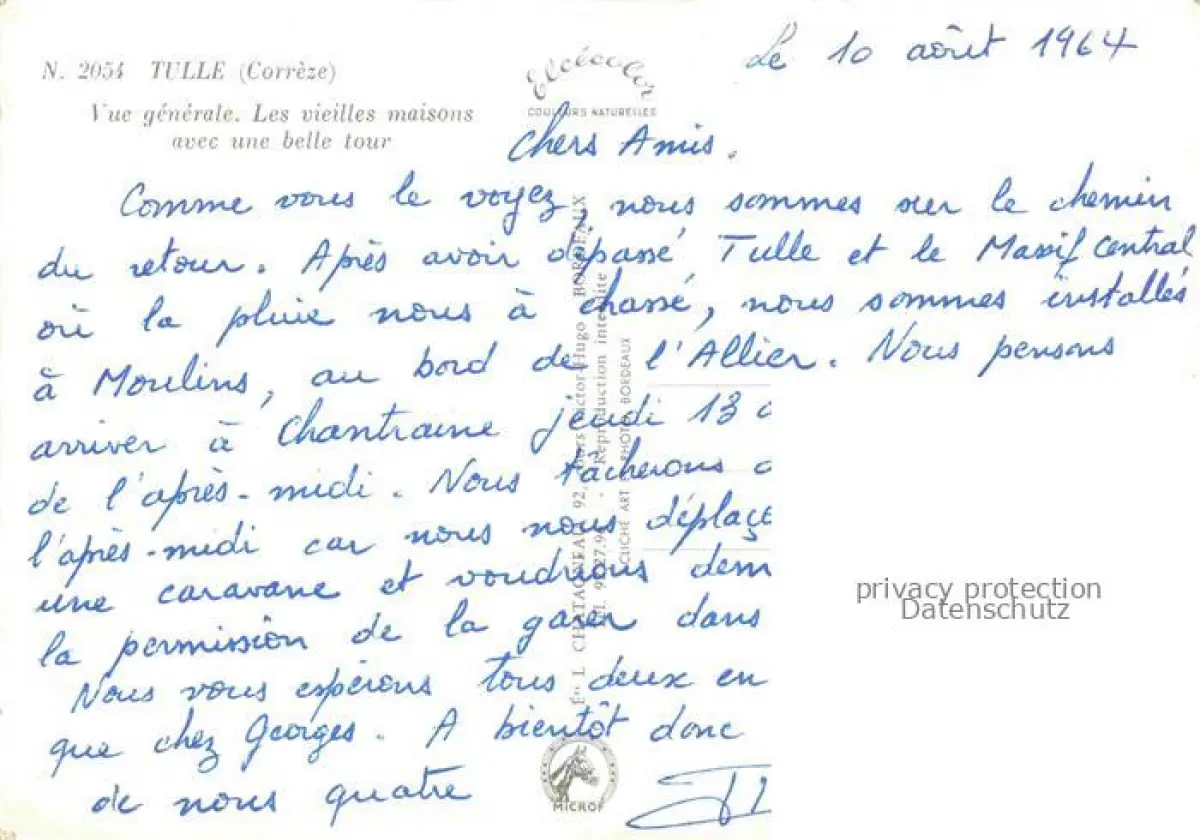 N. 2054 TULLE (Corrèze)
Vue générale. Les vieilles maisons
avec une belle tour
Elcécolor
COULEURS NATURELLES
Le 10 août 1964
Chers Amis.
Comme vous le voyez, nous sommes sur le chemin
du retour. Après avoir dépassé Tulle et le Massif Central
où la pluie nous à chassé, nous sommes installés
à Moulins, au bord de l'Allier. Nous pensons
arriver à Chantraine jeudi 13
de l'après-midi. Nous tâcherons
l'après-midi car nous nous déplaç
une caravane et voudrions dem
la permission de la garer dans
Nous vous espérons tous deux en
que chez Georges. A bientôt donc
de nous quatre
Victor-Hugo BORDEAUX
Reproduction interdite
CLICHÉ ART PHOTO BORDEAUX
MICROF
privacy protection
Datenschutz